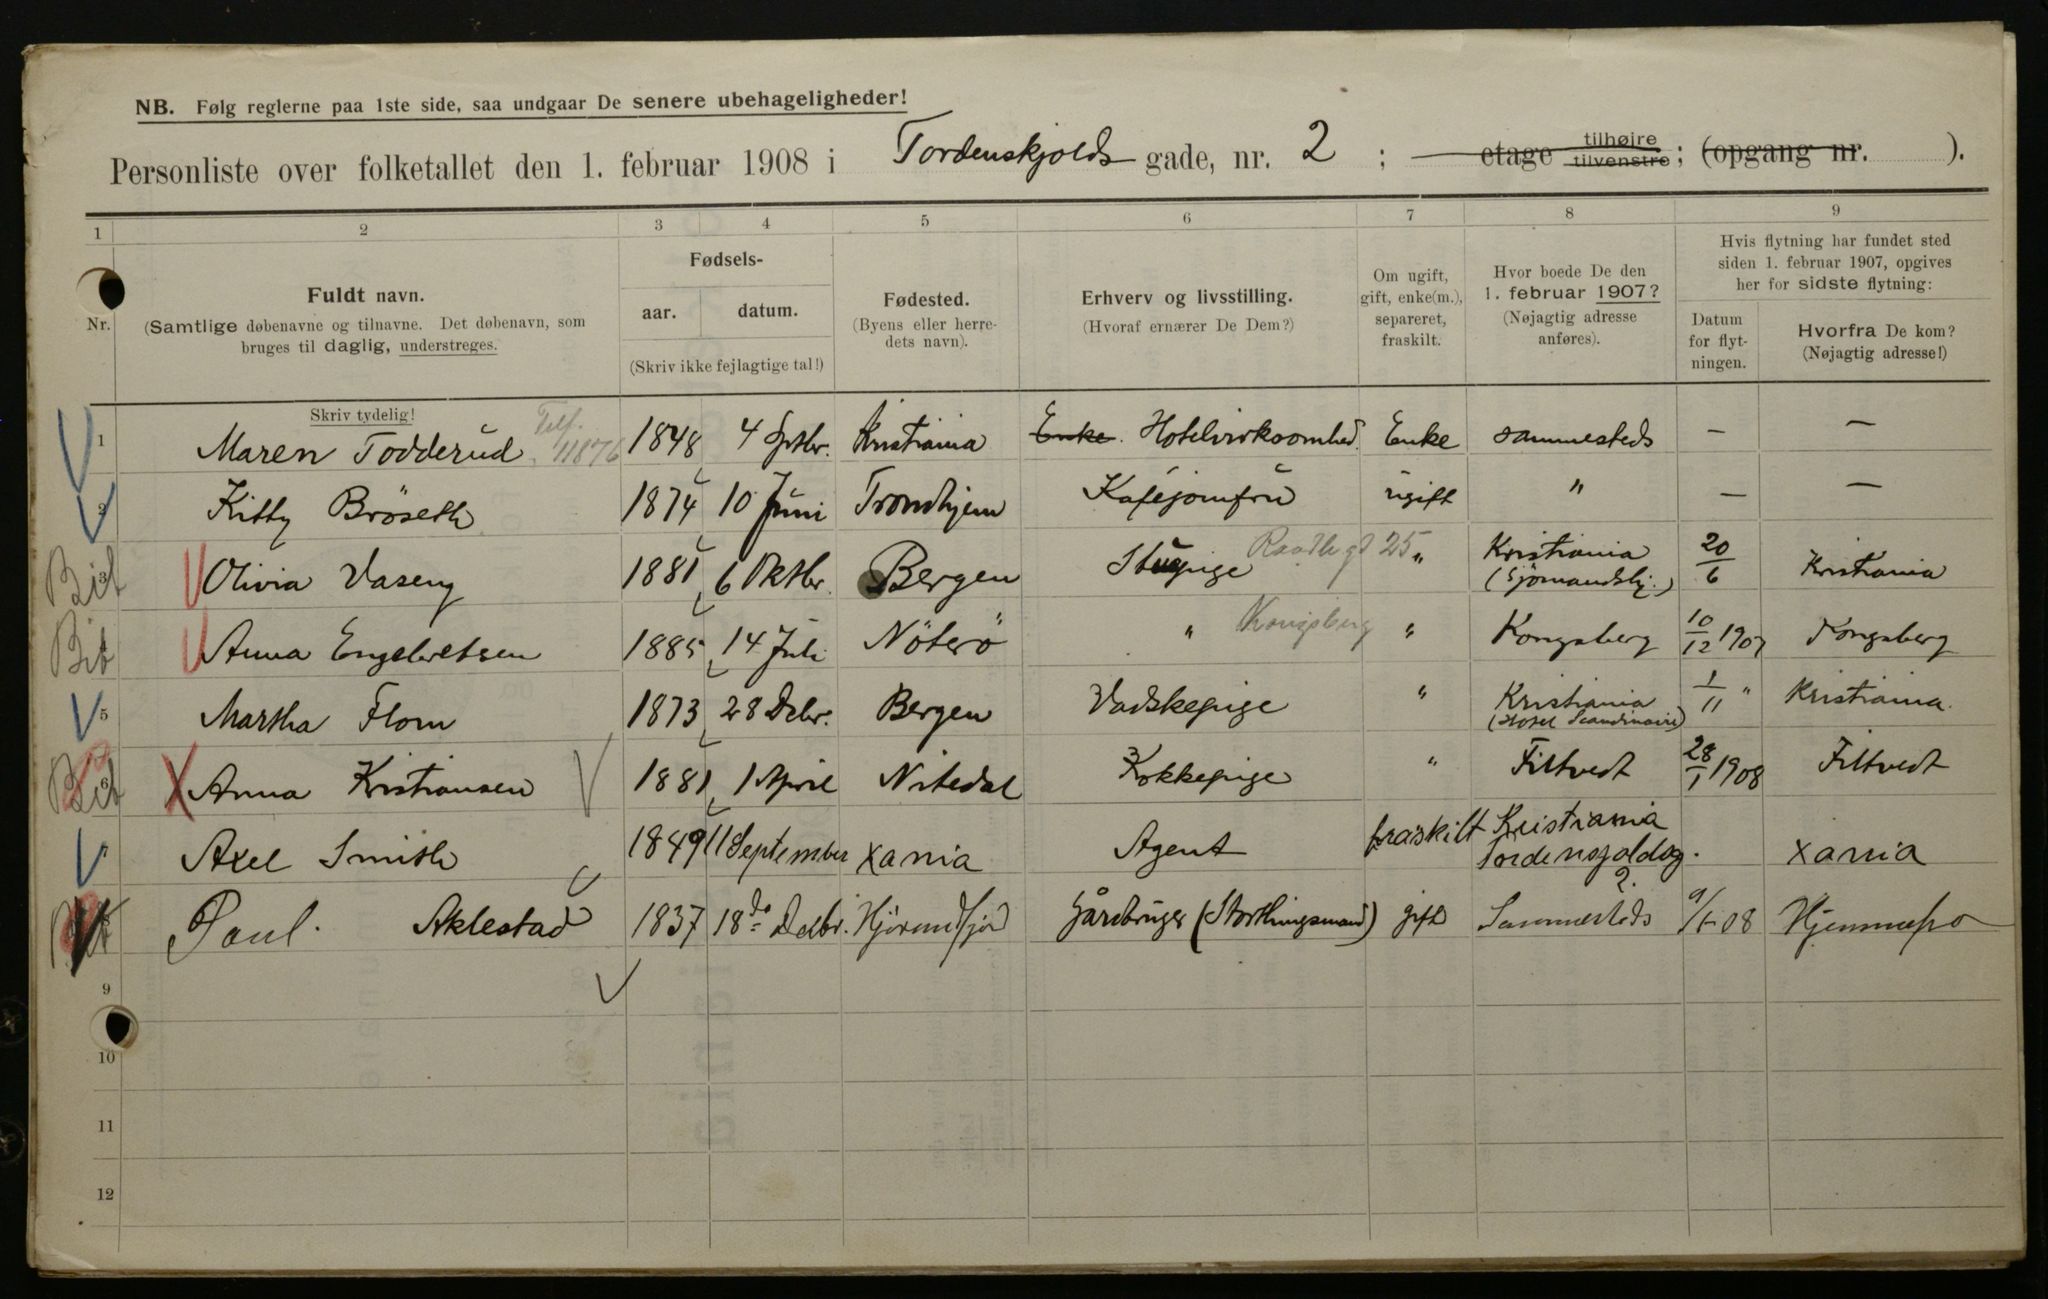 NB. Følg reglerne paa 1ste side, saa undgaar De senere ubehageligheder!
Personliste over folketallet den 1. februar 1908 i Tordenskjolds gade, nr. 2 ; etage tilhøjre tilvenstre ; (opgang nr. ).
1 2 3 4 5 6 7 8 9
Nr.
Fuldt navn.
(Samtlige døbenavne og tilnavne. Det døbenavn, som
bruges til daglig, understreges.
Skriv tydelig!
Fødsels-
aar. datum.
(Skriv ikke fejlagtige tal!)
Fødested.
(Byens eller herre-
dets navn).
Erhverv og livsstilling.
(Hvoraf ernærer De Dem?)
Om ugift,
gift, enke(m.),
separeret,
fraskilt.
Hvor boede De den
1. februar 1907?
(Nøjagtig adresse
anføres).
Hvis flytning har fundet sted
siden 1. februar 1907, opgives
her for sidste flytning:
Datum
for flyt-
ningen.
Hvorfra De kom?
(Nøjagtig adresse!)
1 Maren Todderud Telf. 11876 1848 4 Sptbr. Kristiania Enke. Hotelvirksomhed. Enke sammesteds — —
2 Kitty Bröseth 1874 10 Juni Trondhjem Kaféjomfru ugift " — —
Bit 3 Olivia Vaseng 1881 6 Oktbr. Bergen Stuepige Raadh.gt 25 " Kristiania (Sjömandshj.) 20/6 Kristiania
Bit Anna Engebretsen 1885 14 Juli Nöterö " Kongsberg " Kongsberg 10/12 1907 Kongsberg
5 Martha Flom 1873 28 Debr. Bergen Vadskepige " Kristiania (Hotel Scandinavie) 1/11 " Kristiania.
Bit 6 Anna Kristiansen 1881 1 April Nitedal Kokkepige " Filtvedt 28/1 1908 Filtvedt
7 Axel Smith 1849 11 September Xania Agent fraskilt Kristiania Tordenskjoldsg. 2. Xania
Bit 8 Paul. Aklestad 1837 18de Decbr. Hjörundfjord Gårdbruger (Storthingsmand) gift Sammesteds 9/1-08 Hjemmefra
9
10
11
12